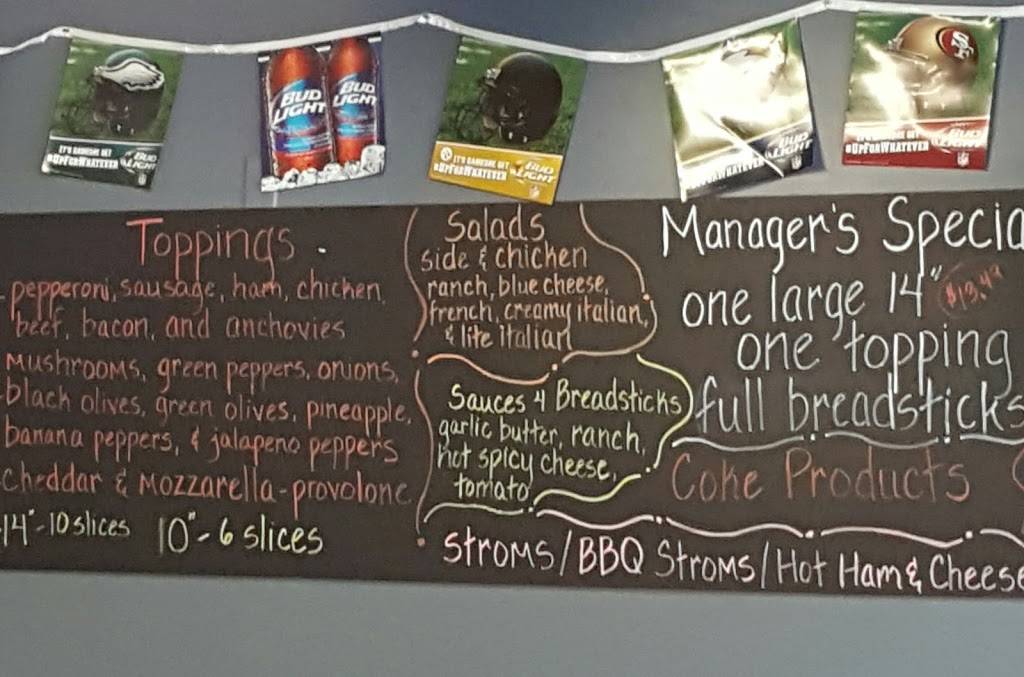 IT'S GAMEDAY. GET
#UPFORWHATEVER
BUD
LIGHT
BUD
LIGHT
BUD
LIGHT
IT'S GAMEDAY. GET
#UPFORWHATEVER
BUD
LIGHT
#UPFORWHATEVER
BUD
LIGHT
SF
IT'S GAMEDAY. GET
#UPFORWHATEVER
BUD
LIGHT
NFL
Toppings
pepperoni, sausage, ham, chicken,
beef, bacon, and anchovies
Mushrooms, green peppers, onions,
black olives, green olives, pineapple,
banana peppers, & jalapeno peppers
Cheddar & Mozzarella-provolone
14"-10 slices 10"-6 slices
Salads
side & chicken
ranch, blue cheese,
french, creamy italian,
& lite italian
Sauces 4 Breadsticks
garlic butter, ranch,
hot spicy cheese,
tomato
Manager's Specia
one large 14" $13.49
one topping
full breadsticks
Coke Products
Stroms/BBQ Stroms/Hot Ham & Cheese